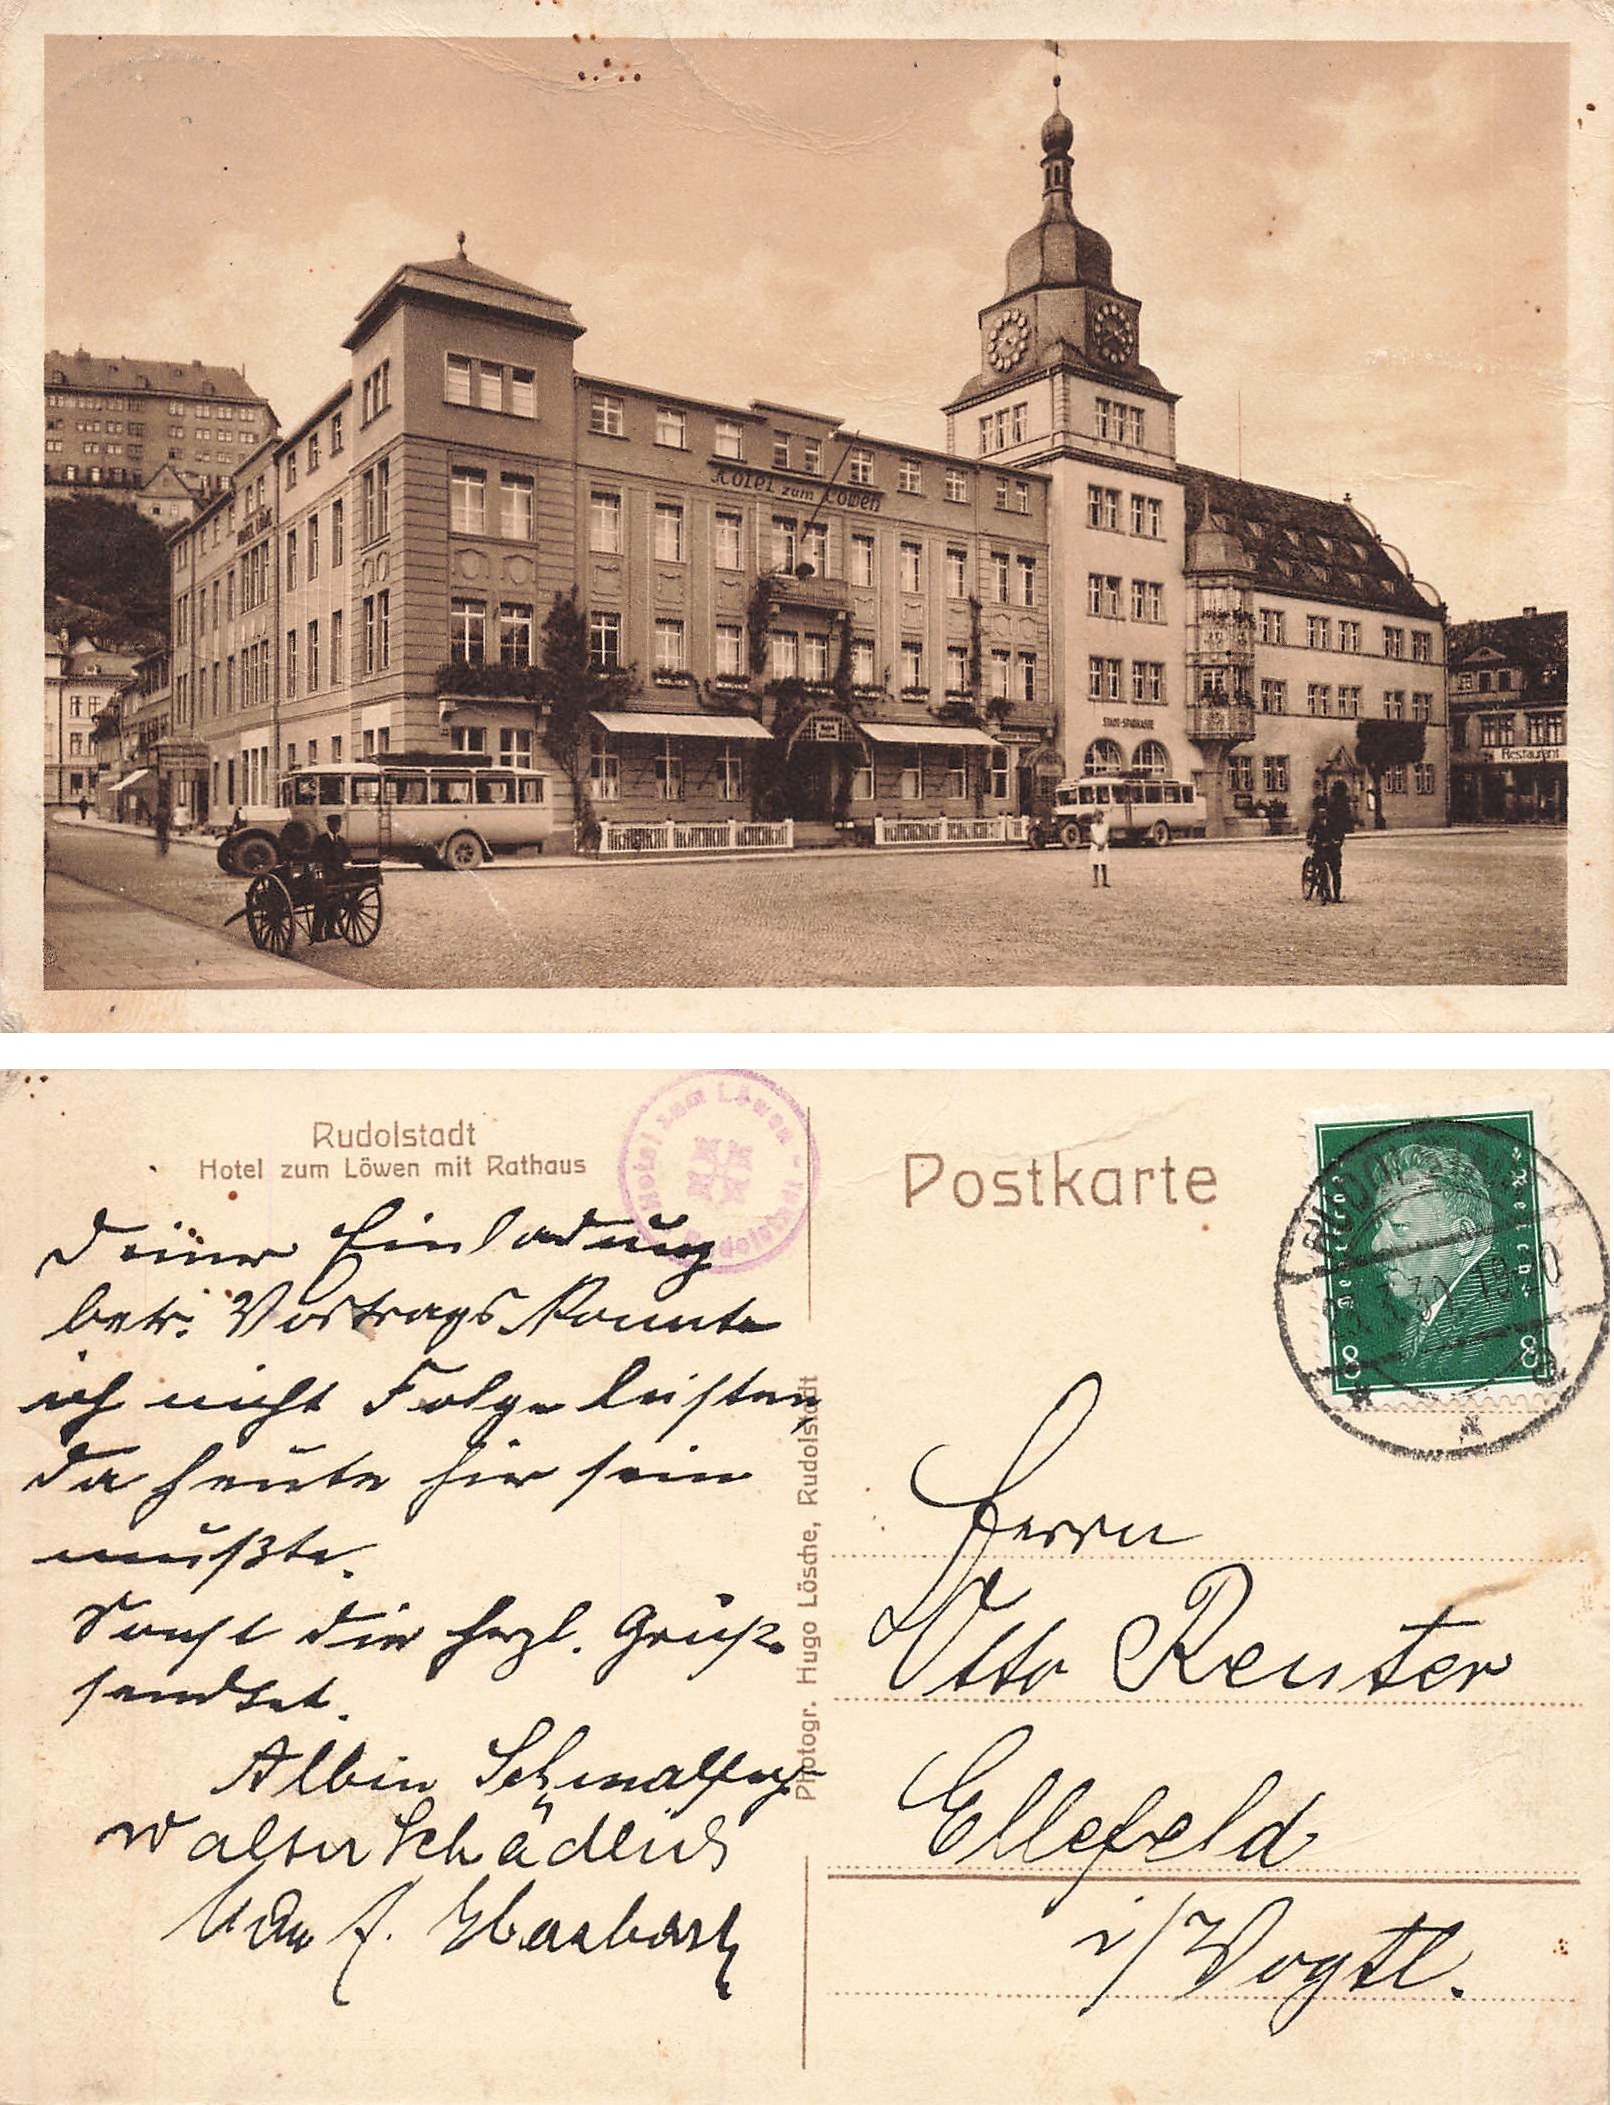 Hotel zum Löwen
STADT-SPARKASSE
Restaurant
Rudolstadt
Hotel zum Löwen mit Rathaus
Hotel zum Löwen - Rudolstadt
Postkarte
Deutsches Reich
8 8
Deiner Einladung
betr. Vortrags konnte
ich nicht Folge leisten,
da heute hier sein
mußte.
Sonst die herzl. Grüße
sendet.
Albin
Walter Schädlich
Photogr. Hugo Lösche, Rudolstadt
Herrn
Otto Reuter
Ellefeld
i/Vogtl.